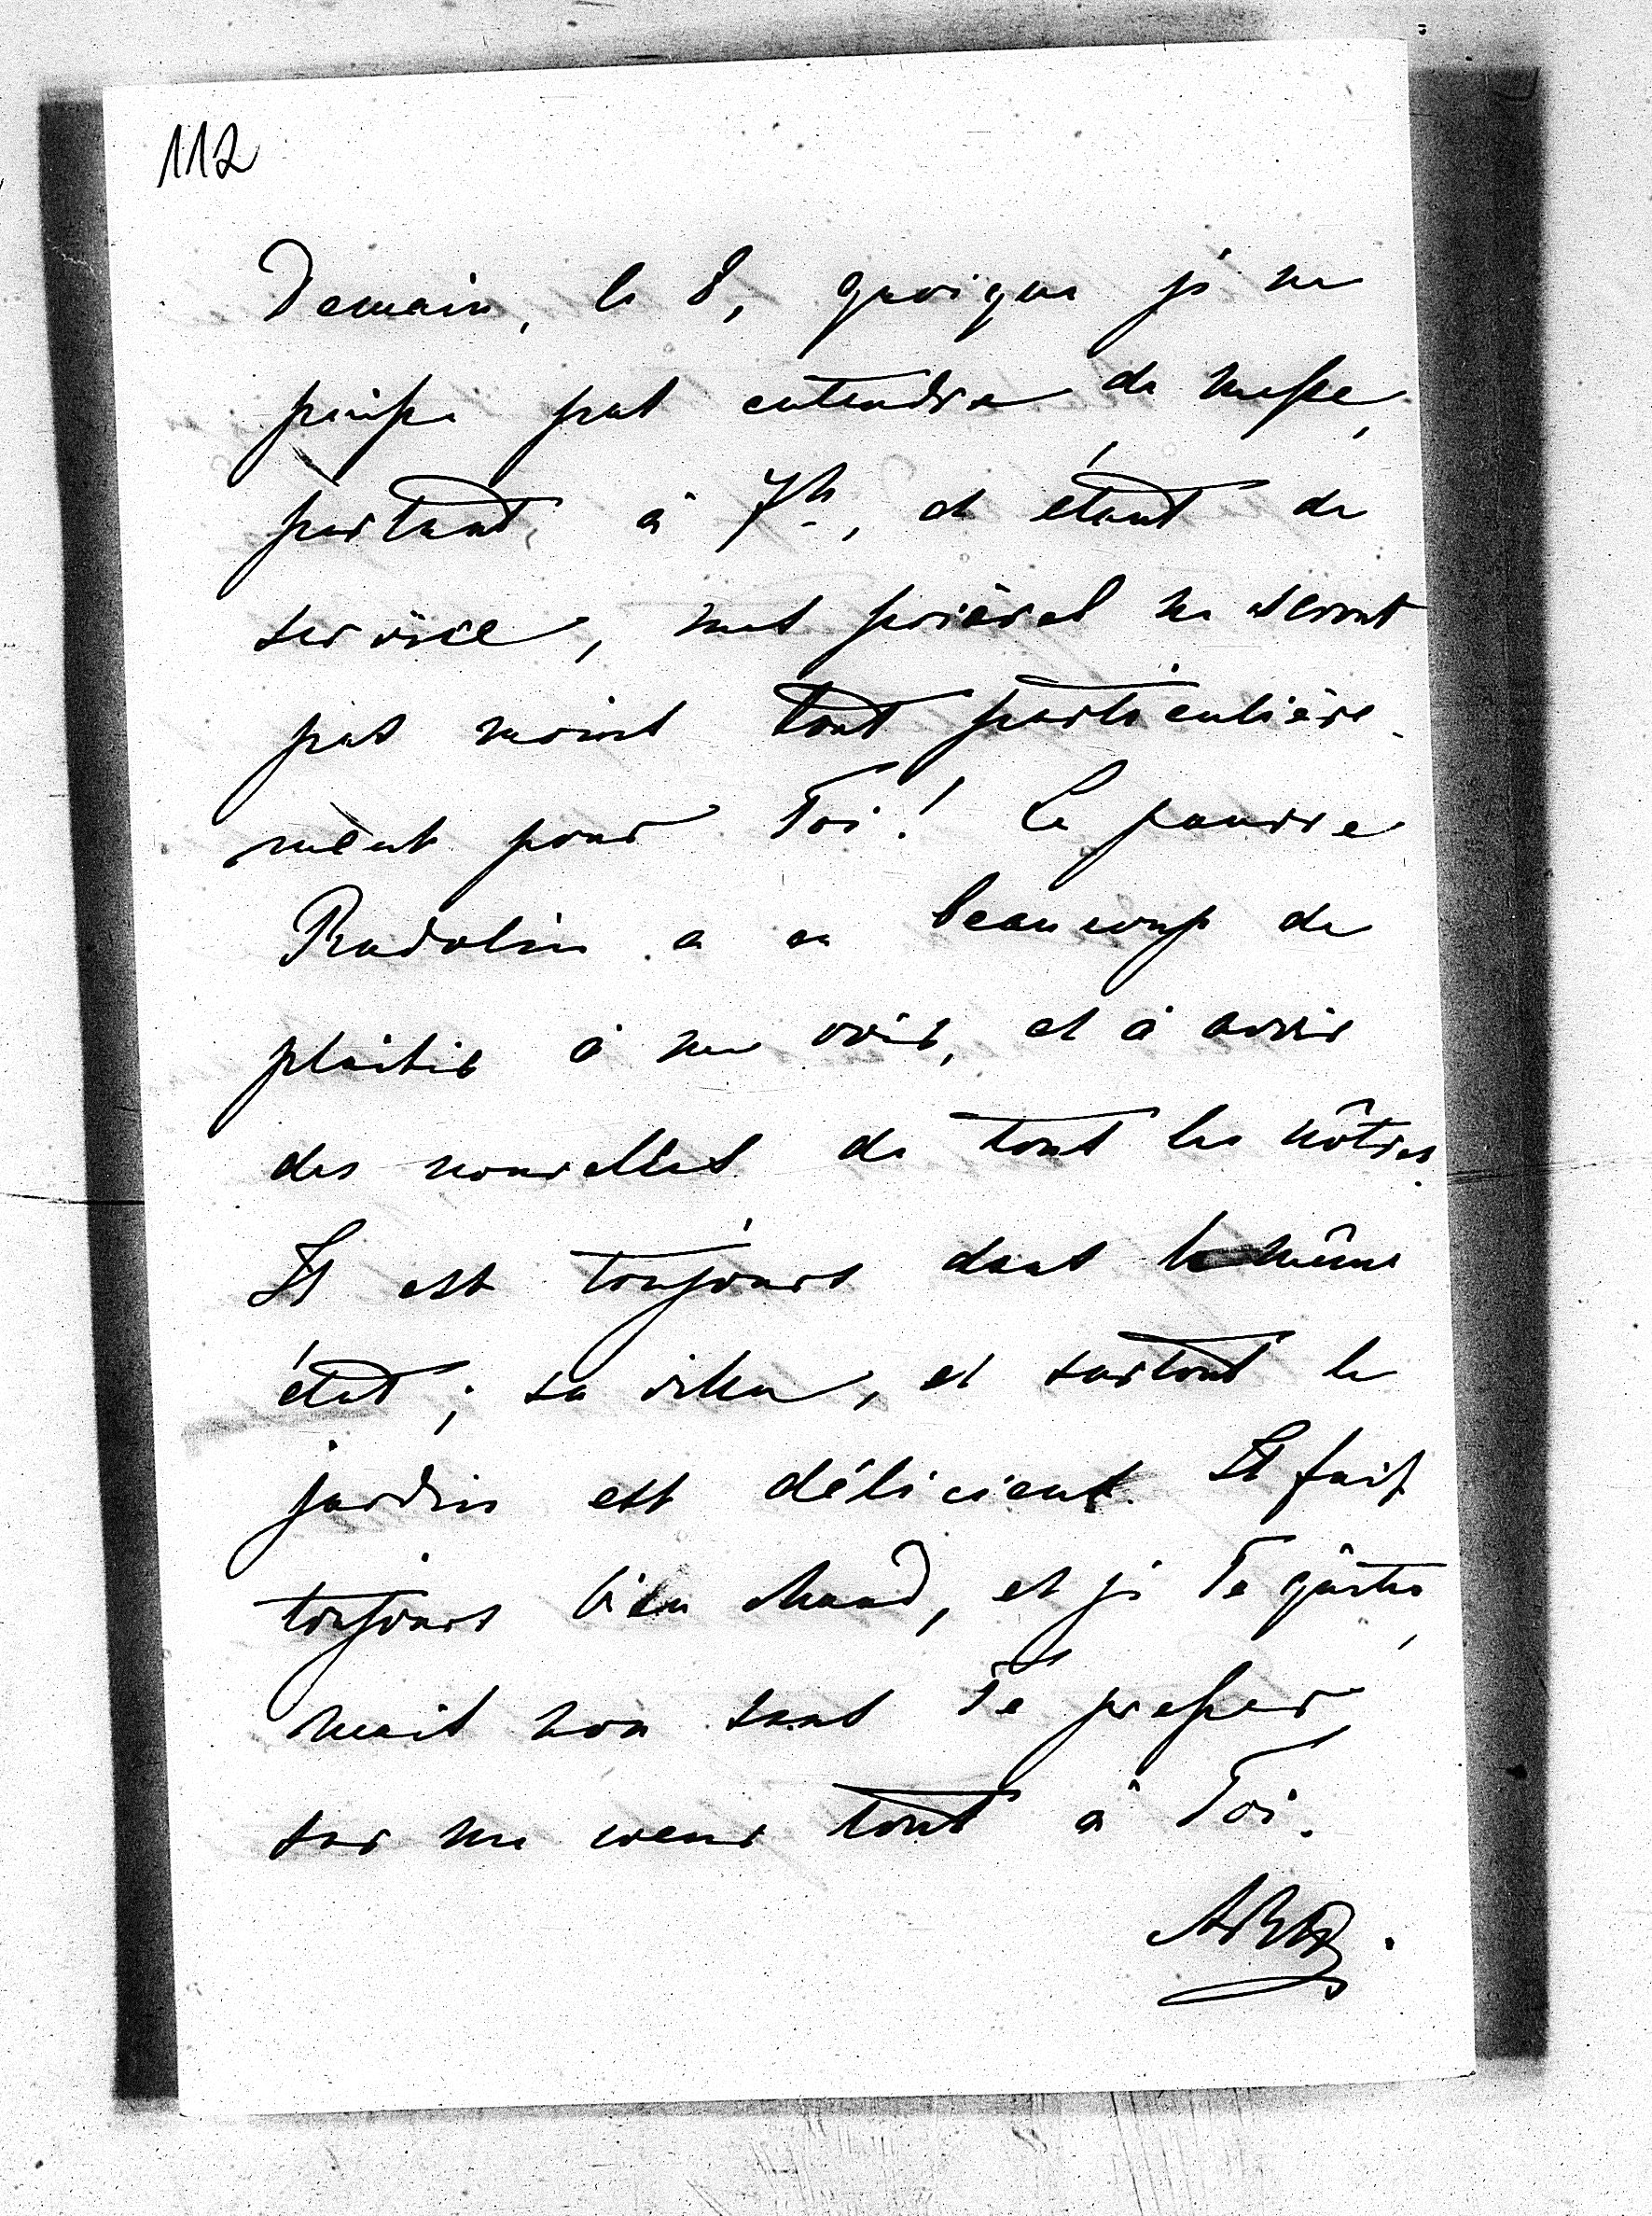 112
Demain, le 8, quoique je ne
puisse pas entendre de messe,
partant, à 7h, et étant de
service, mes prières ne seront
pas moins tout particulière-
ment pour Toi! Le pauvre
Radolin a eu beaucoup de
plaisir à me voir, et à avoir
des nouvelles de tous les nôtres.
Il est toujours dans le même
état; sa villa, et surtout le
jardin est délicieux. Il fait
toujours bien chaud, et je Te quitte,
mais non sans Te presser
sur mon coeur tout à Toi.